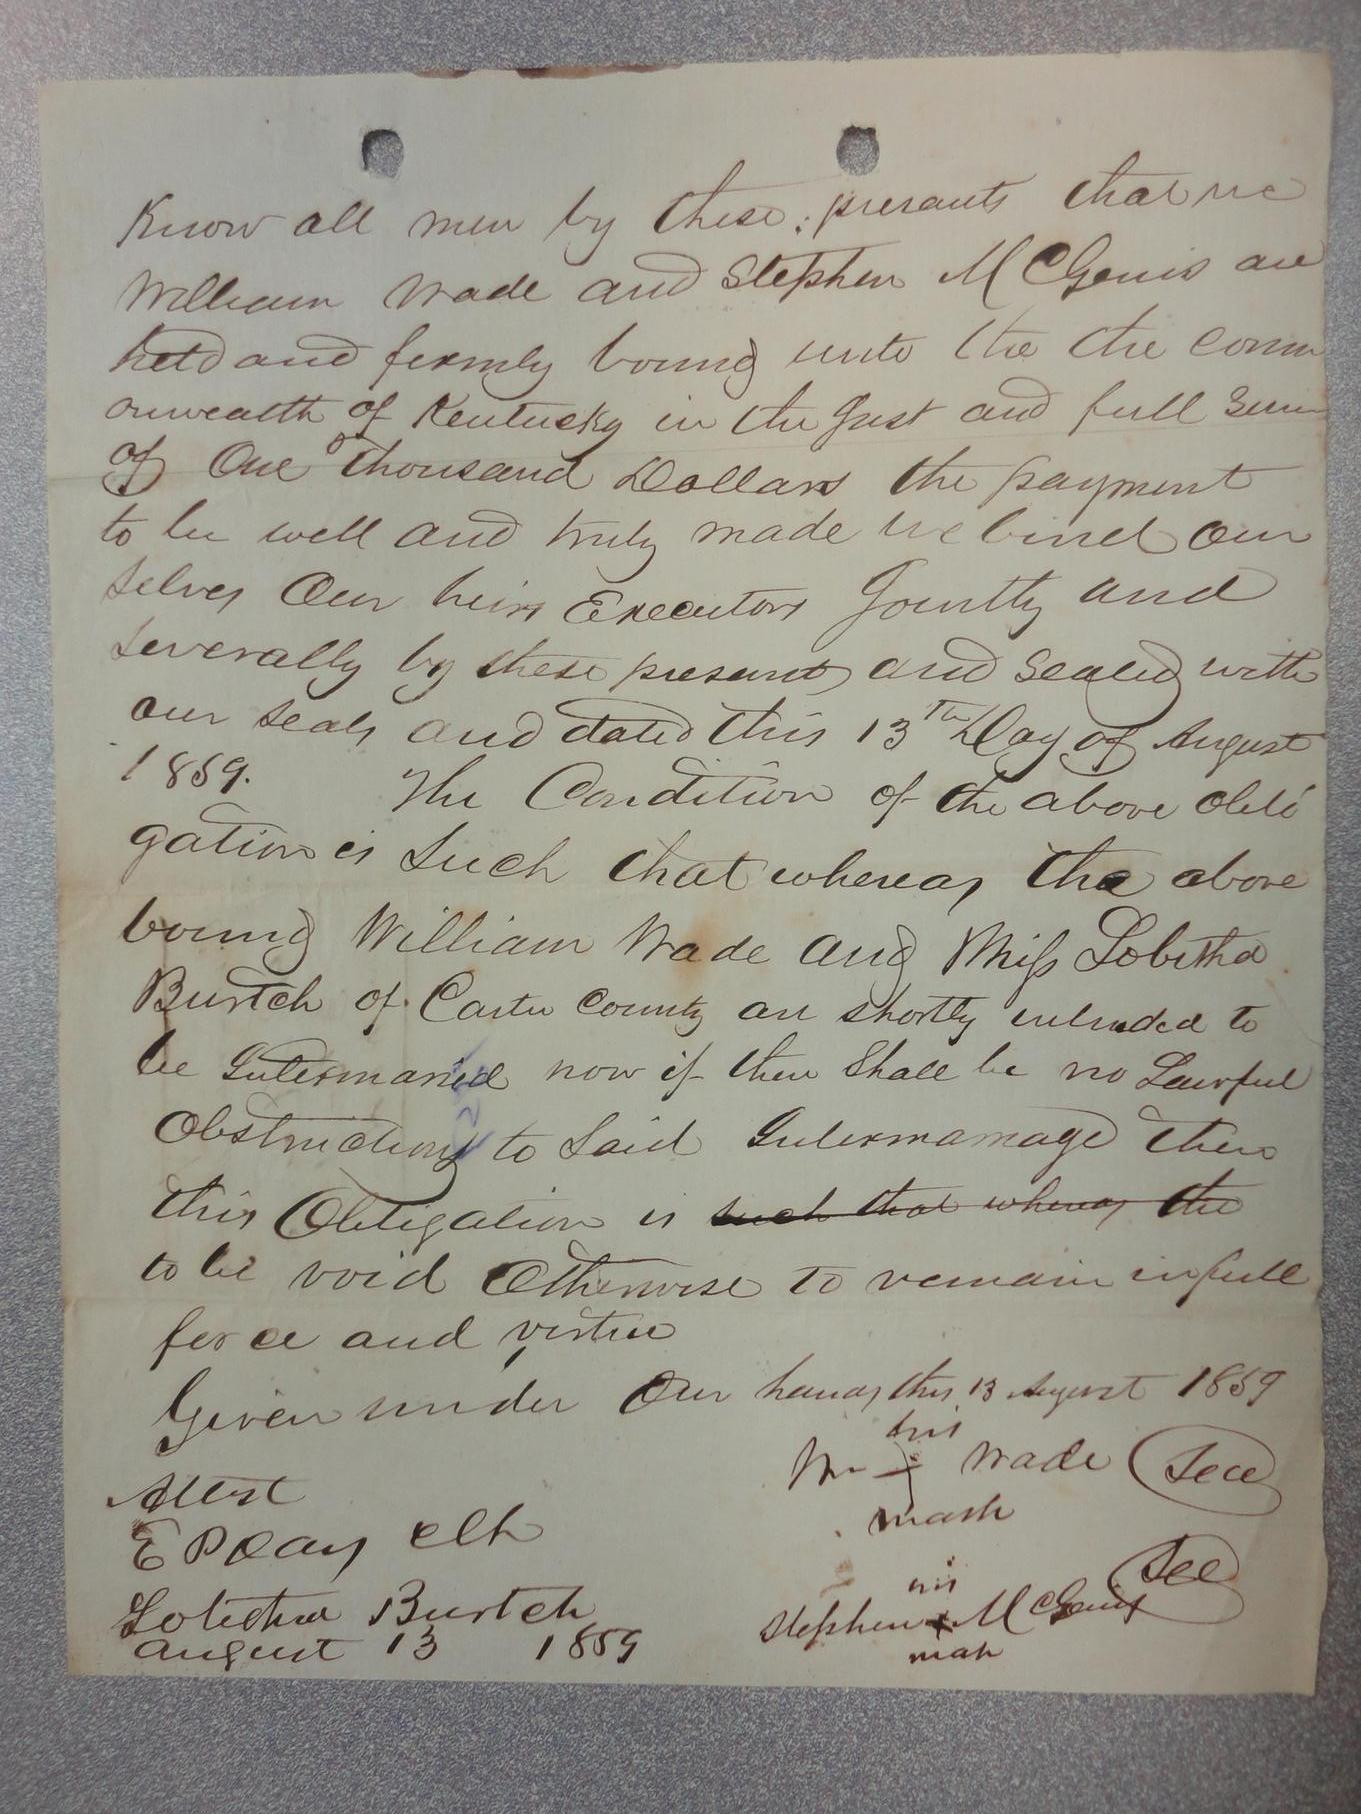 Know all men by these presants that we
William Wade and Stephen McGenis are
held and firmly bound unto the the comm
onwealth of Kentucky in the Just and full sum
of One thousand Dollars the payment
to be well and truly made we bind our
selves Our heirs Executors Jointly and
severally by these presants and Sealed with
our seals and dated this 13th Day of August
1859. The Condition of the above obli
gation is Such that whereas the above
bound William Wade and Miss Lobitha
Burtch of Carter County are shortly intended to
be Intermaried now if there Shall be no Lawful
Obstructions to Said Intermarriage then
this Obligation is such that whereas the
to be void Otherwise to remain in full
force and virtue
Given under Our hands this 13 August 1859
his
Wm Wade Seal
mark
Attest
E P Day Clk
his
Stephen x McGenis Seal
mark
Lobitha Burtch
august 13 1859